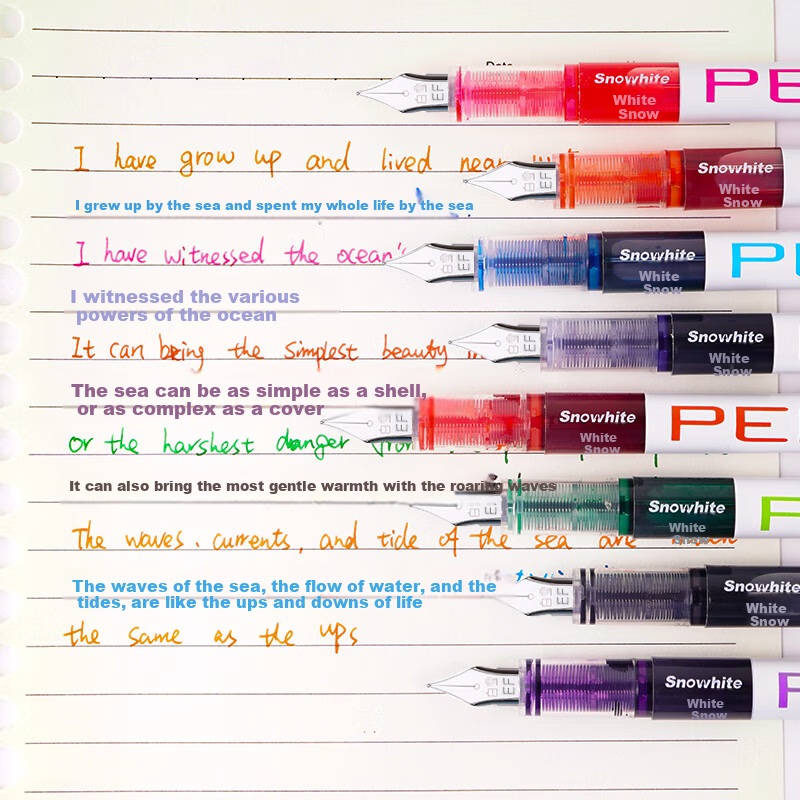 Snowhite PE
White
Snow
I have grow up and lived near
Snowhite
White
Snow
I grew up by the sea and spent my whole life by the sea
I have witnessed the ocean's
Snowhite PE
White
Snow
I witnessed the various
powers of the ocean
It can bring the simplest beauty
Snowhite
White
Snow
The sea can be as simple as a shell,
or as complex as a cover
Snowhite PE
White
Snow
or the harshest danger from
It can also bring the most gentle warmth with the roaring waves
Snowhite
White
Snow
The waves. currents, and tide of the sea are
The waves of the sea, the flow of water, and the
tides, are like the ups and downs of life
Snowhite
White
Snow
the same as the ups
Snowhite
White
Snow
EF
EF
EF
EF
EF
EF
EF
EF